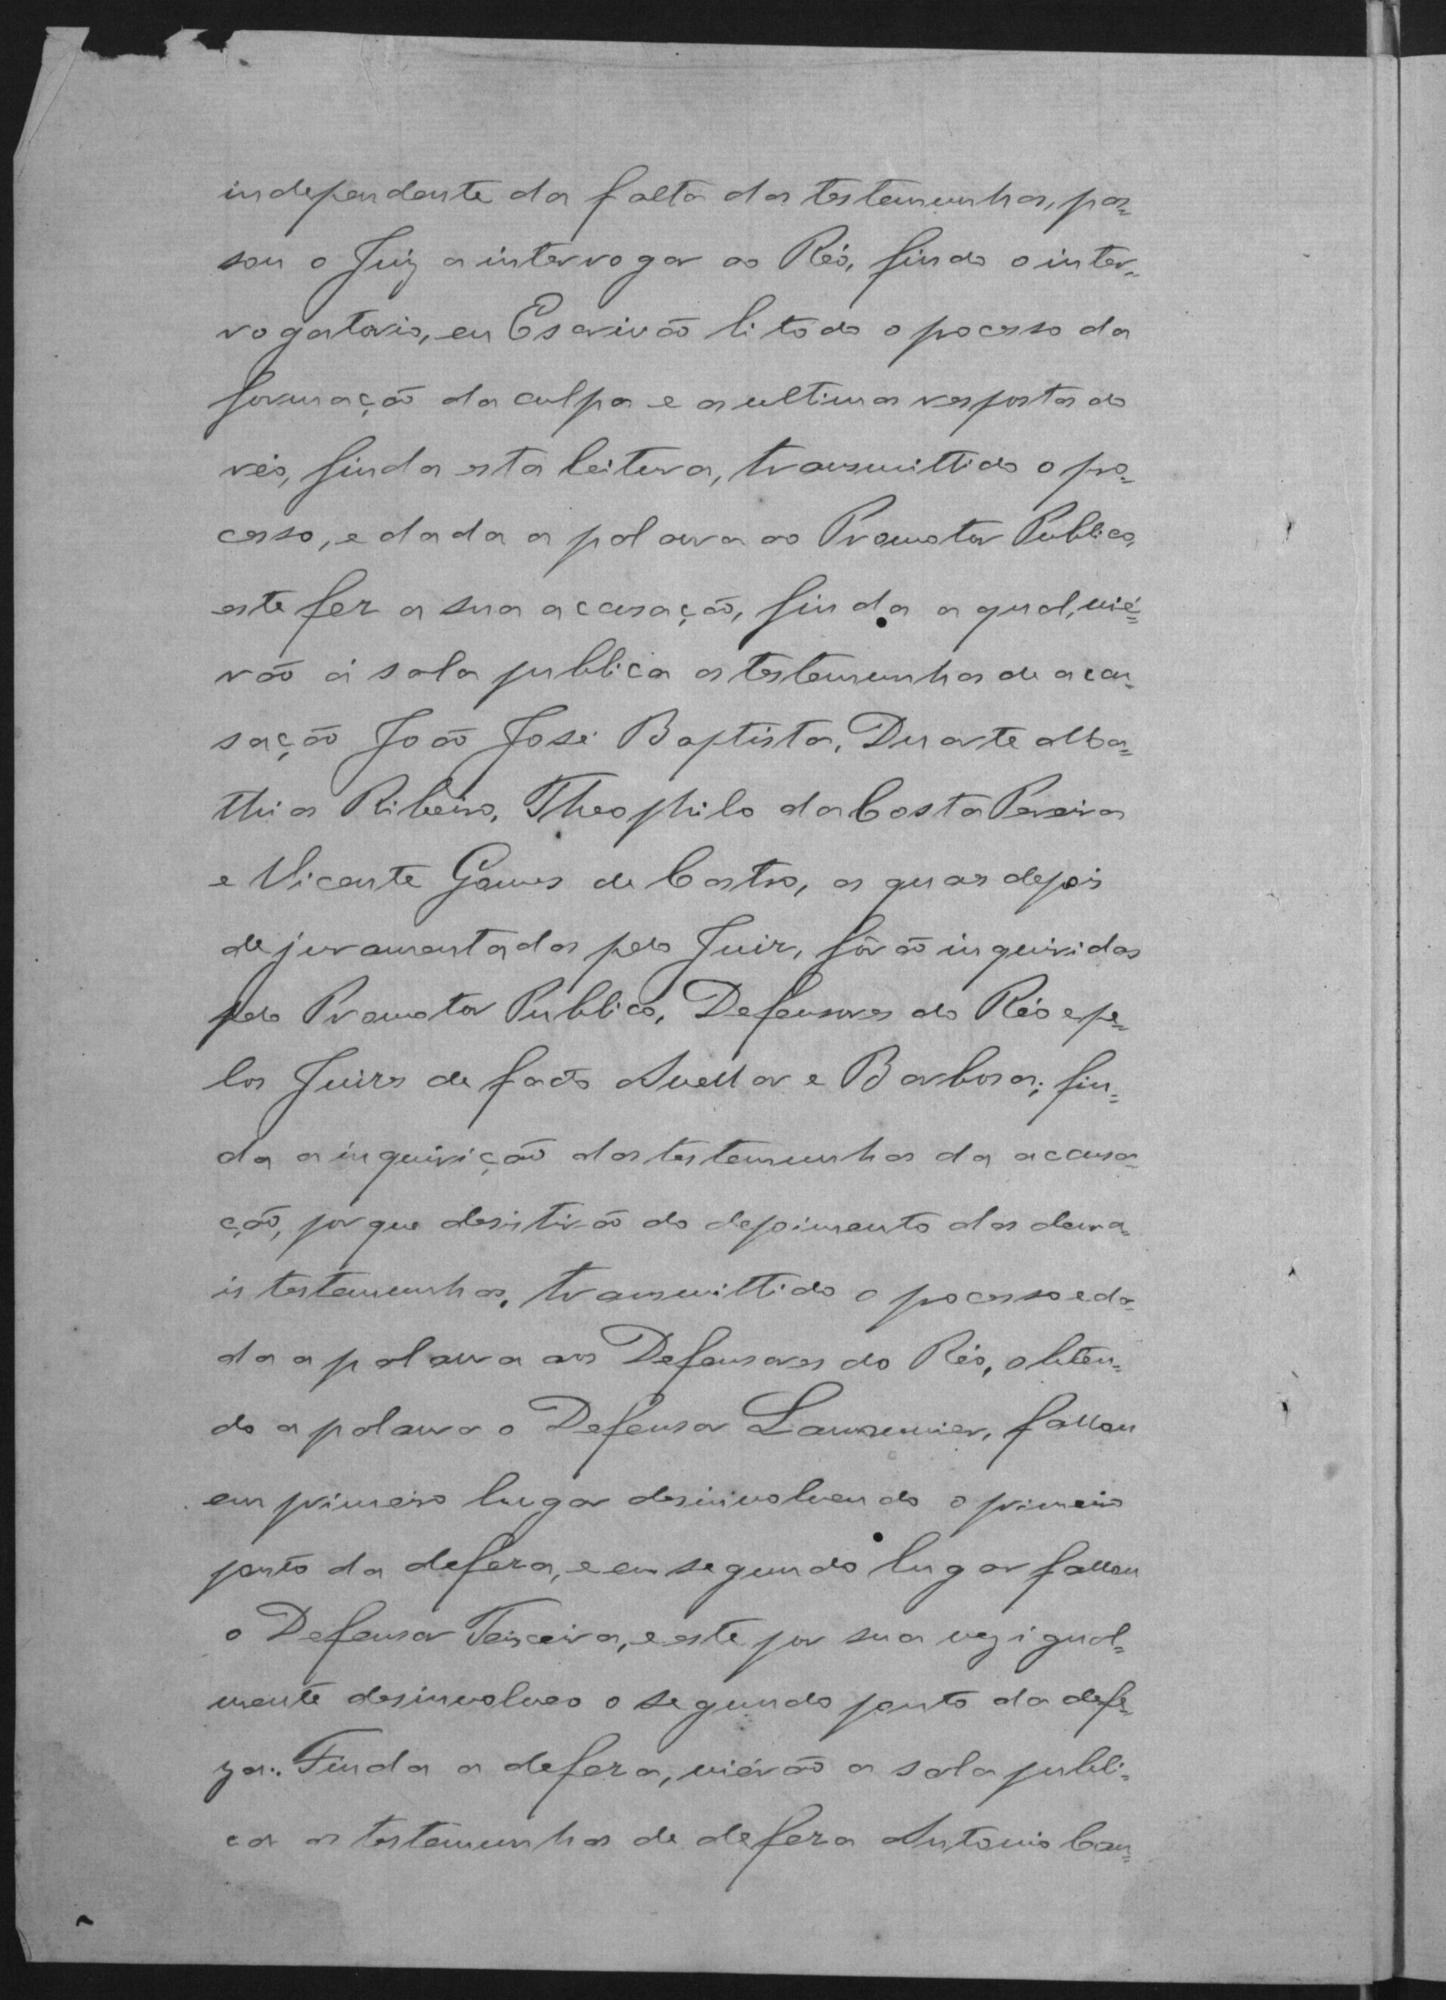 independente da falta das testemunhas, pas=
sou o Juiz a interrogar ao Réo, findo o inter=
rogatorio, eu Escrivão li todo o pocesso da
formação da culpa e as ultimas respostas do
réo, finda esta leitura, transmittido o po=
cesso, e dada a palavra ao Promotor Publico,
este fez a sua acusação, finda a qual, vié=
rão á sala publica as testemunhas de acu=
sação João José Baptista, Duarte Ma=
thias Ribeiro, Theophilo da Costa Pereira
e Vicente Gomes de Castro, as quaes depois
de juramentadas pelo Juiz, fôrão inquiridas
pelo Promotor Publico, Defensores do Réo e pe=
los Juizes de facto Avellar e Barbosa; fin=
da a inquirição das testemunhas da accusa=
ção, por que desistirão do depoimento das dema=
is testemunhas, transmittido o pocesso e da=
da a palavra aos Defensores do Réo, obten=
do a palavra o Defensor fallou
em primeiro lugar desinvolvendo o primeiro
ponto da defeza, e em segundo lugar fallou
o Defensor Teixeira, e este por sua vez igual=
mente desinvolveo o segundo ponto da defe=
za. Finda a defeza, viérão a sala publi=
ca as testemunhas de defeza Antonio Can=